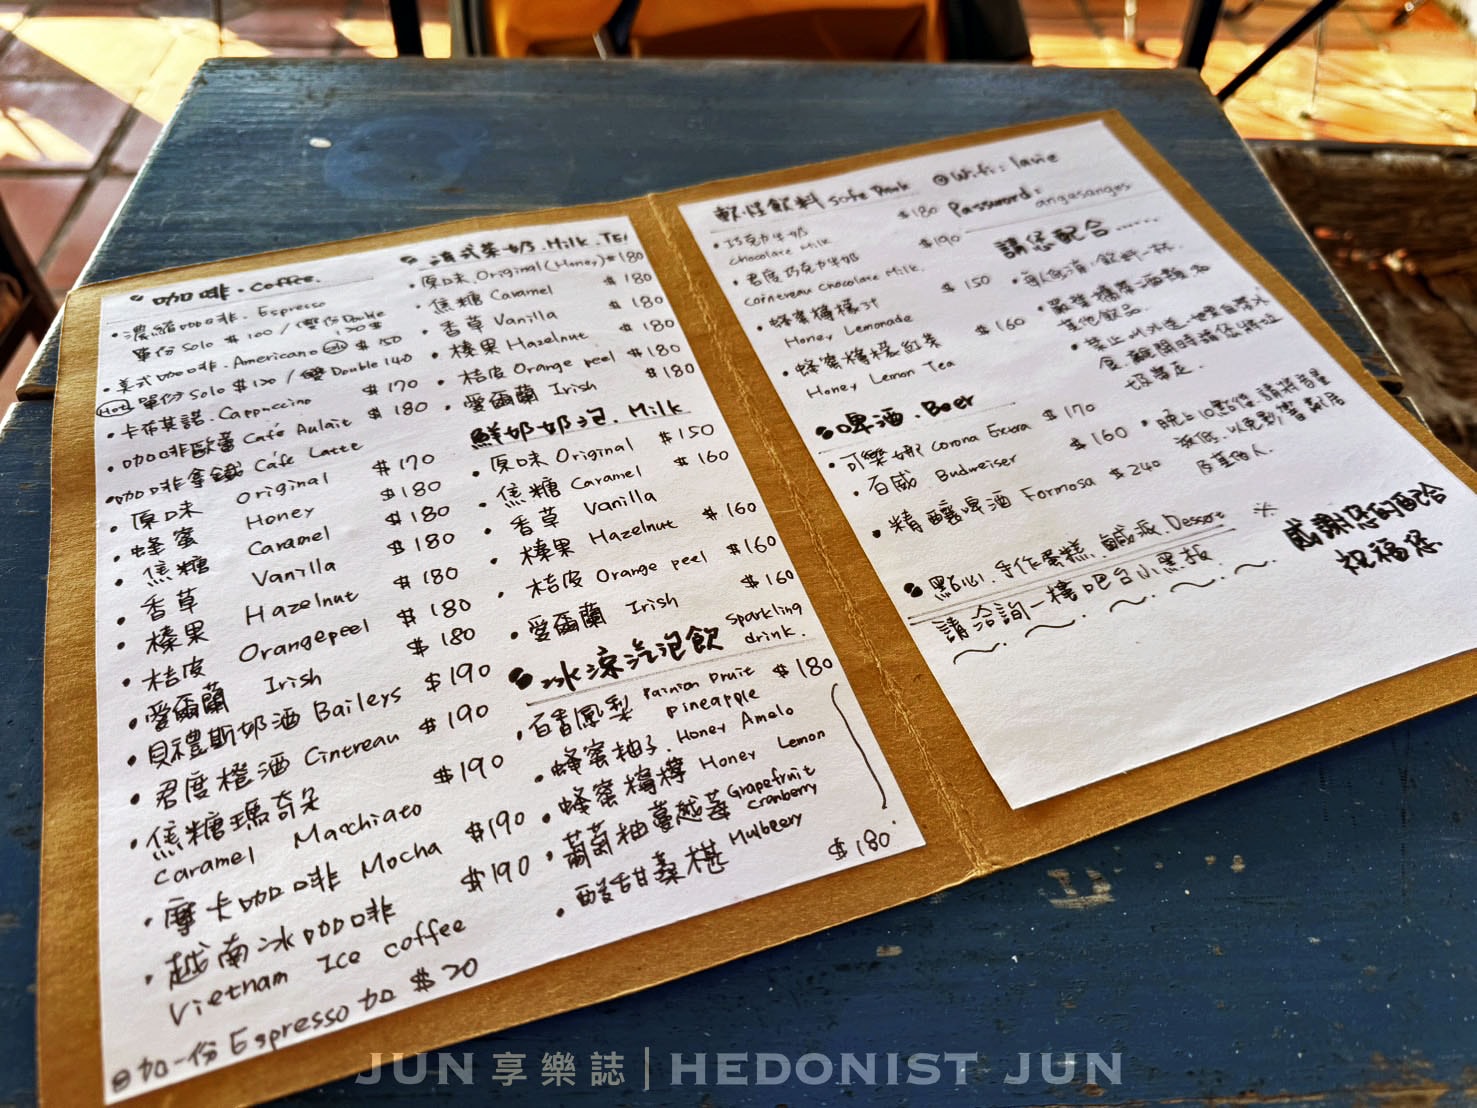 咖啡.Coffee.
濃縮咖啡.Espresso
單份Solo $100 / 雙份Double
120
美式咖啡.Americano $150
Hot 單份Solo $120 / 雙Double 140
卡布其諾.Cappuccino $170
咖啡歐蕾 Café Aulait $180
咖啡拿鐵 Café Latte
原味 Original $170
蜂蜜 Honey $180
焦糖 Caramel $180
香草 Vanilla $180
榛果 Hazelnut $180
桔皮 Orangepeel $180
愛爾蘭 Irish $180
貝禮斯奶酒 Baileys $190
君度橙酒 Cintreau $190
焦糖瑪奇朵 $190
Caramel Macchiato
摩卡咖啡 Mocha $190
越南冰咖啡 $190
Vietnam Ice coffee
加一份 Espresso 加 $20
奶.Milk.TEA
原味.Original(Honey) $180
焦糖 Caramel $180
香草 Vanilla $180
榛果 Hazelnut $180
桔皮 Orange peel $180
愛爾蘭 Irish $180
鮮奶奶泡.Milk
原味 Original $150
焦糖 Caramel $160
香草 Vanilla
榛果 Hazelnut $160
桔皮 Orange peel $160
愛爾蘭 Irish $160
冰涼汽泡飲 Sparkling
drink.
百香鳳梨 $180
pineapple
蜂蜜柚子.Honey
蜂蜜檸檬 Honey Lemon
葡萄柚蔓越莓 Grapefruit
cranberry
酸甜桑椹 Mulbeery $180
軟性飲料
巧克力牛奶 $180
Chocolate Milk
君度巧克力牛奶 $190
Cointreau Chocolate Milk.
蜂蜜檸檬汁 $150
Honey Lemonade
蜂蜜檸檬紅茶 $160
Honey Lemon Tea
啤酒.Beer
可樂娜 Corona Extra $170
百威 Budweiser $160
精釀啤酒 Formosa $240
點心.手作蛋糕.鹹派.Dessert
請洽詢一樓吧台小黑板.
Wifi: lavie
Password:
angasangas
請您配合.....
每人低消1飲料一杯.
嚴禁攜帶酒類和
其他飲品.
禁止外送.如果自帶冰
食.離開時請您將垃
圾帶走.
晚上10點後.請將音量
減低.以免影響鄰居
及其他人.
※
感謝您的配合
祝福您
JUN 享樂誌 | HEDONIST JUN